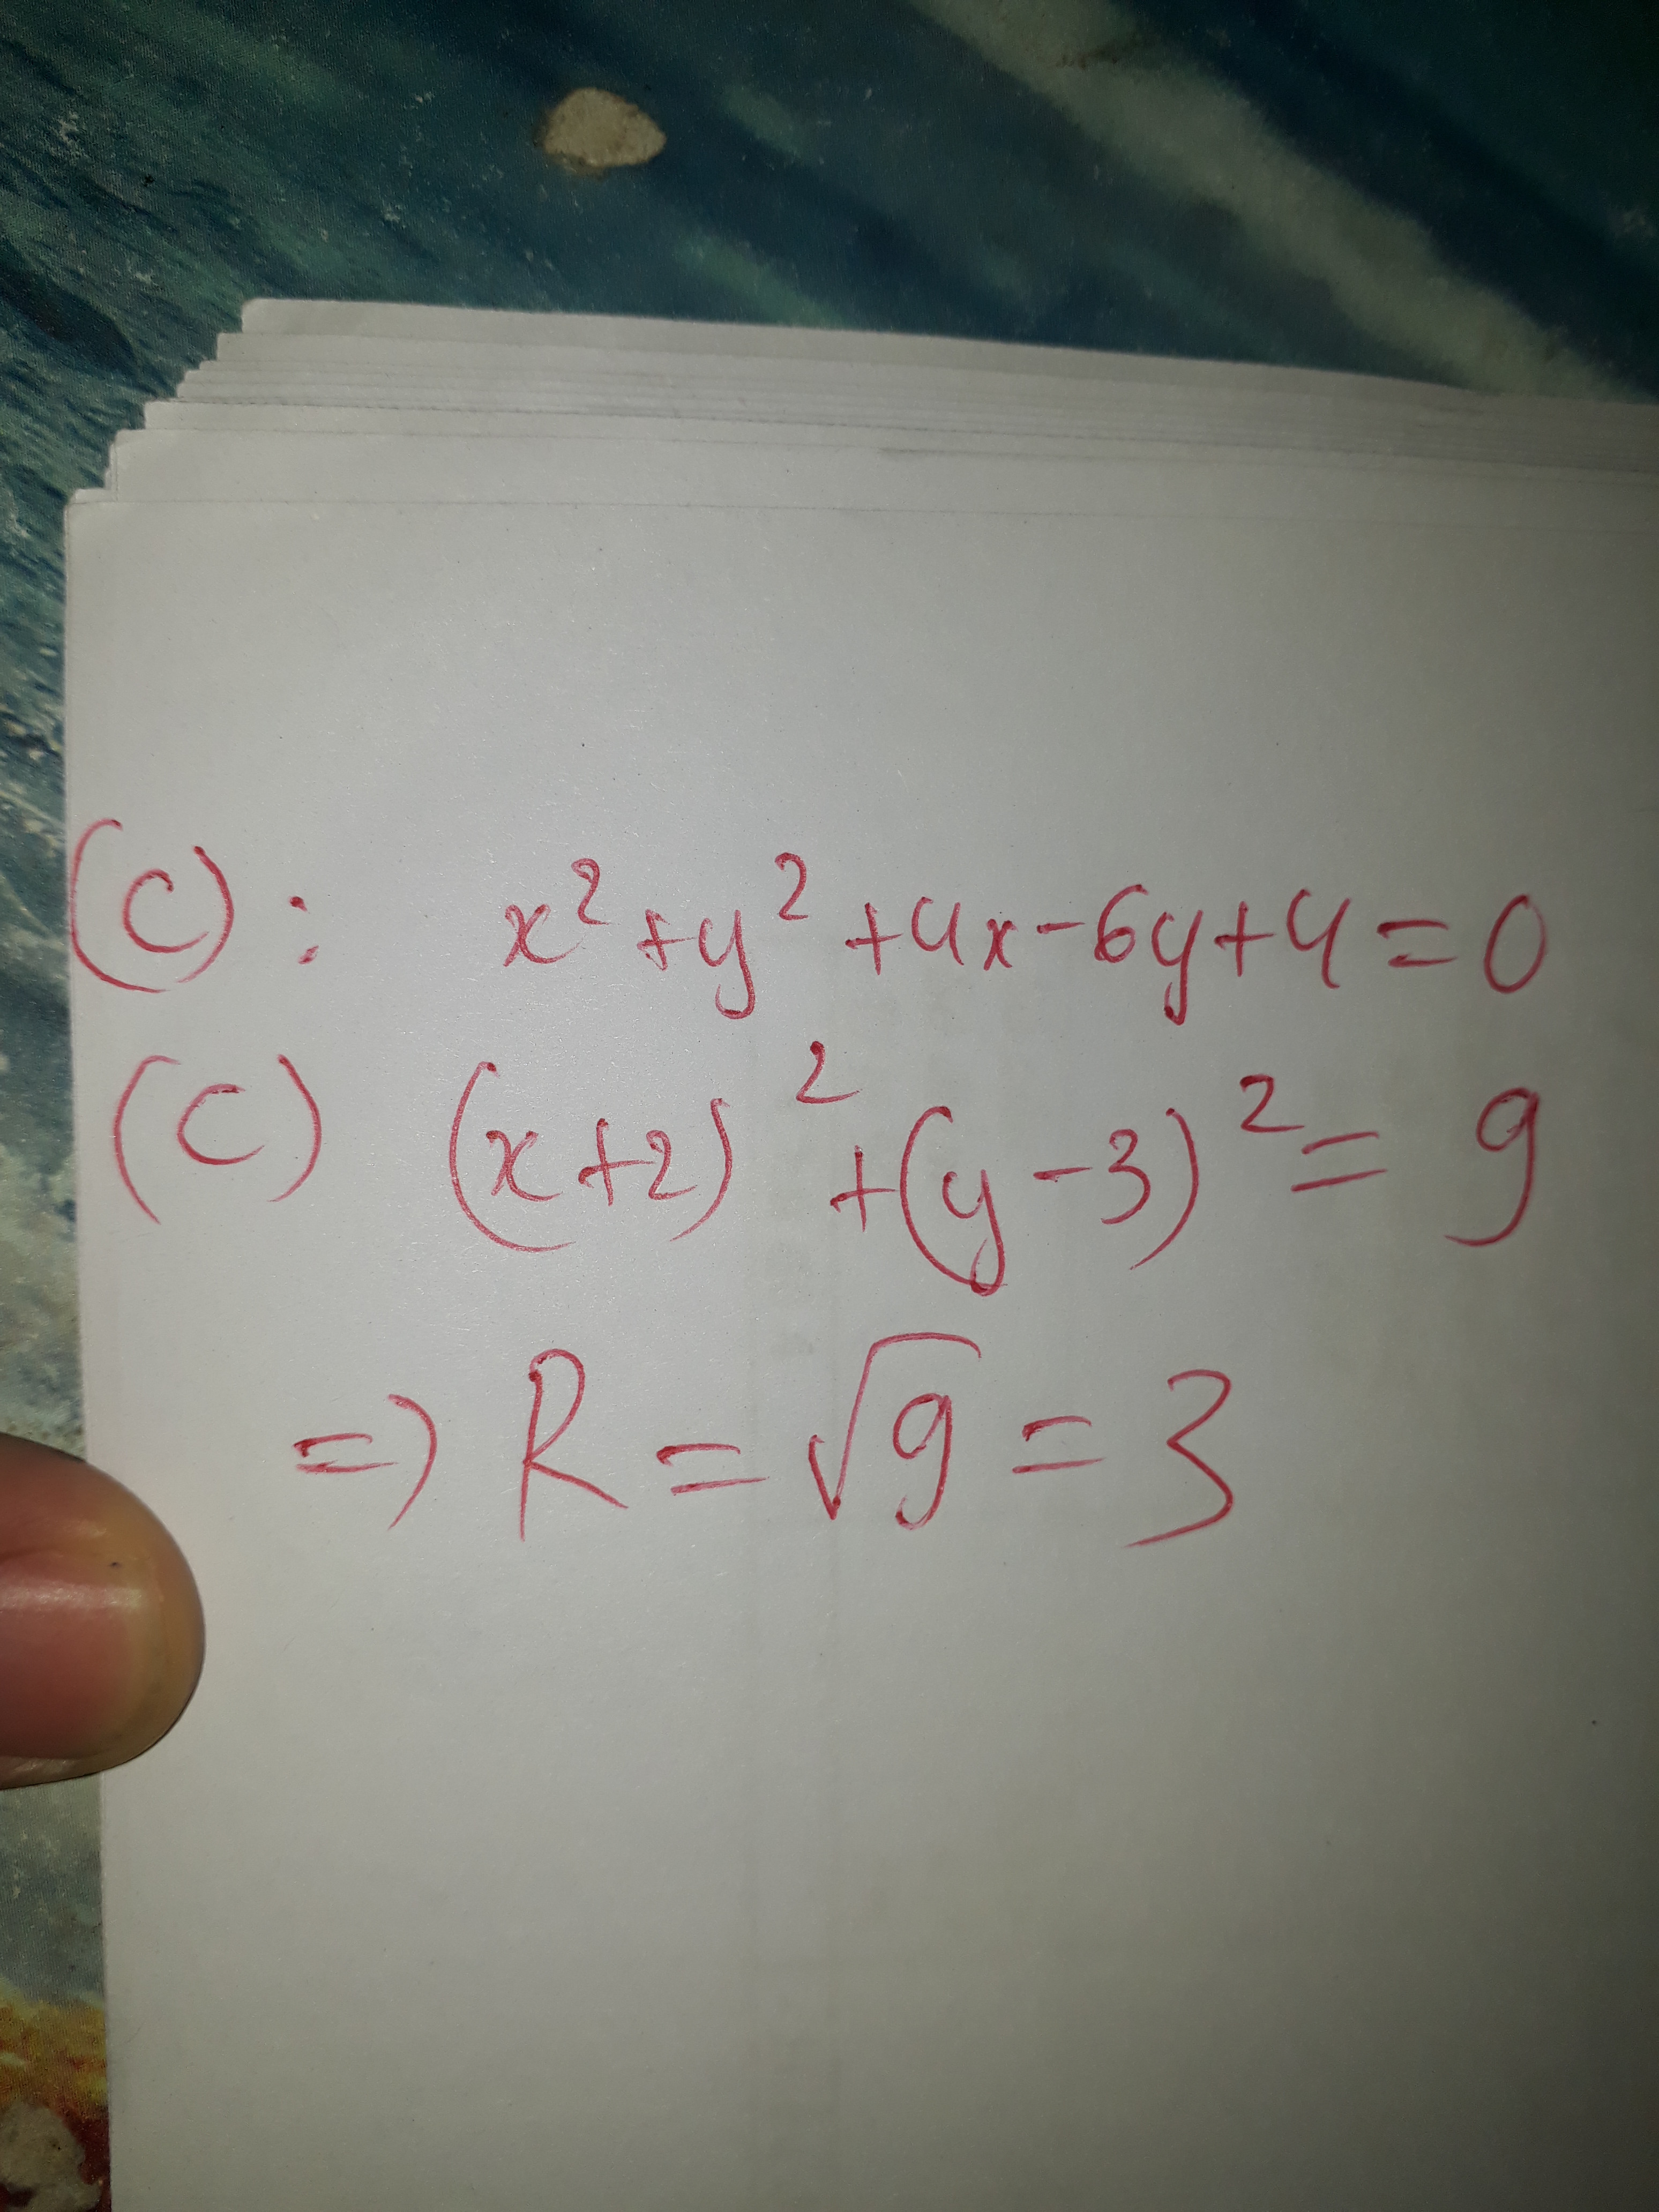 (C): x² + y² + 4x - 6y + 4 = 0
(C) (x + 2)² + (y - 3)² = 9
=> R = √9 = 3